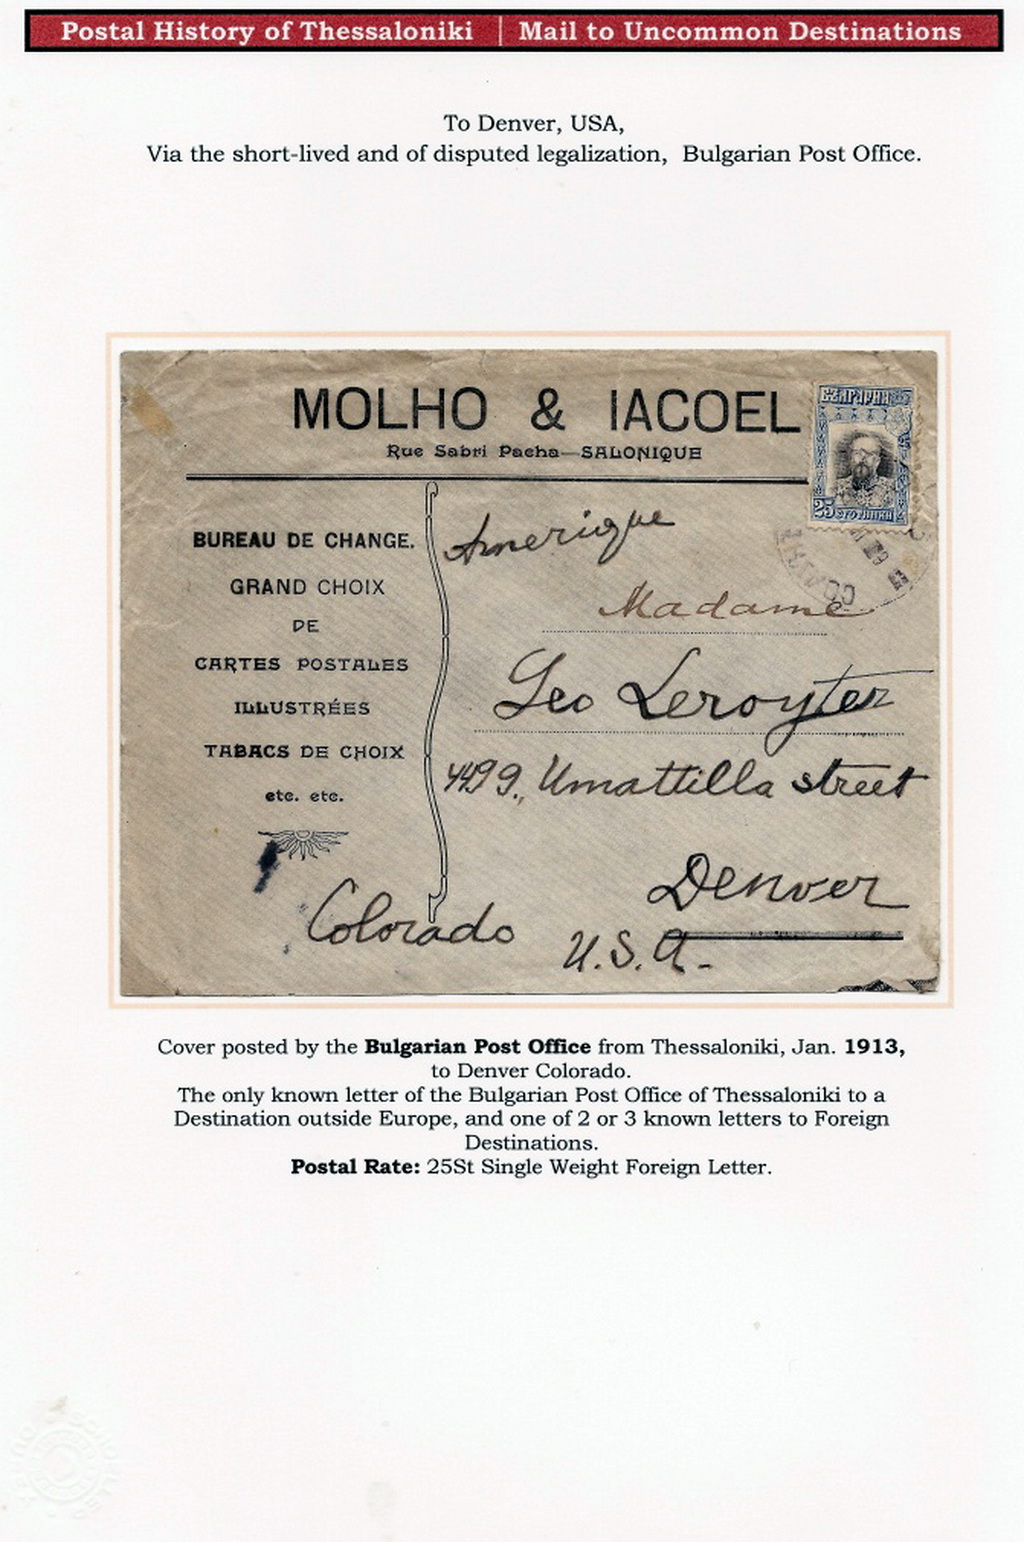 Postal History of Thessaloniki | Mail to Uncommon Destinations
To Denver, USA,
Via the short-lived and of disputed legalization, Bulgarian Post Office.
MOLHO & IACOEL
Rue Sabri Pacha—SALONIQUE
БЪЛГАРИЯ
25 СТОТИНКИ
BUREAU DE CHANGE.
GRAND CHOIX
DE
CARTES POSTALES
ILLUSTRÉES
TABACS DE CHOIX
etc. etc.
Amerique
Madame
Geo Leroyter
4499., Umattilla street
Denver
Colorado
U.S.A.-
Cover posted by the Bulgarian Post Office from Thessaloniki, Jan. 1913,
to Denver Colorado.
The only known letter of the Bulgarian Post Office of Thessaloniki to a
Destination outside Europe, and one of 2 or 3 known letters to Foreign
Destinations.
Postal Rate: 25St Single Weight Foreign Letter.